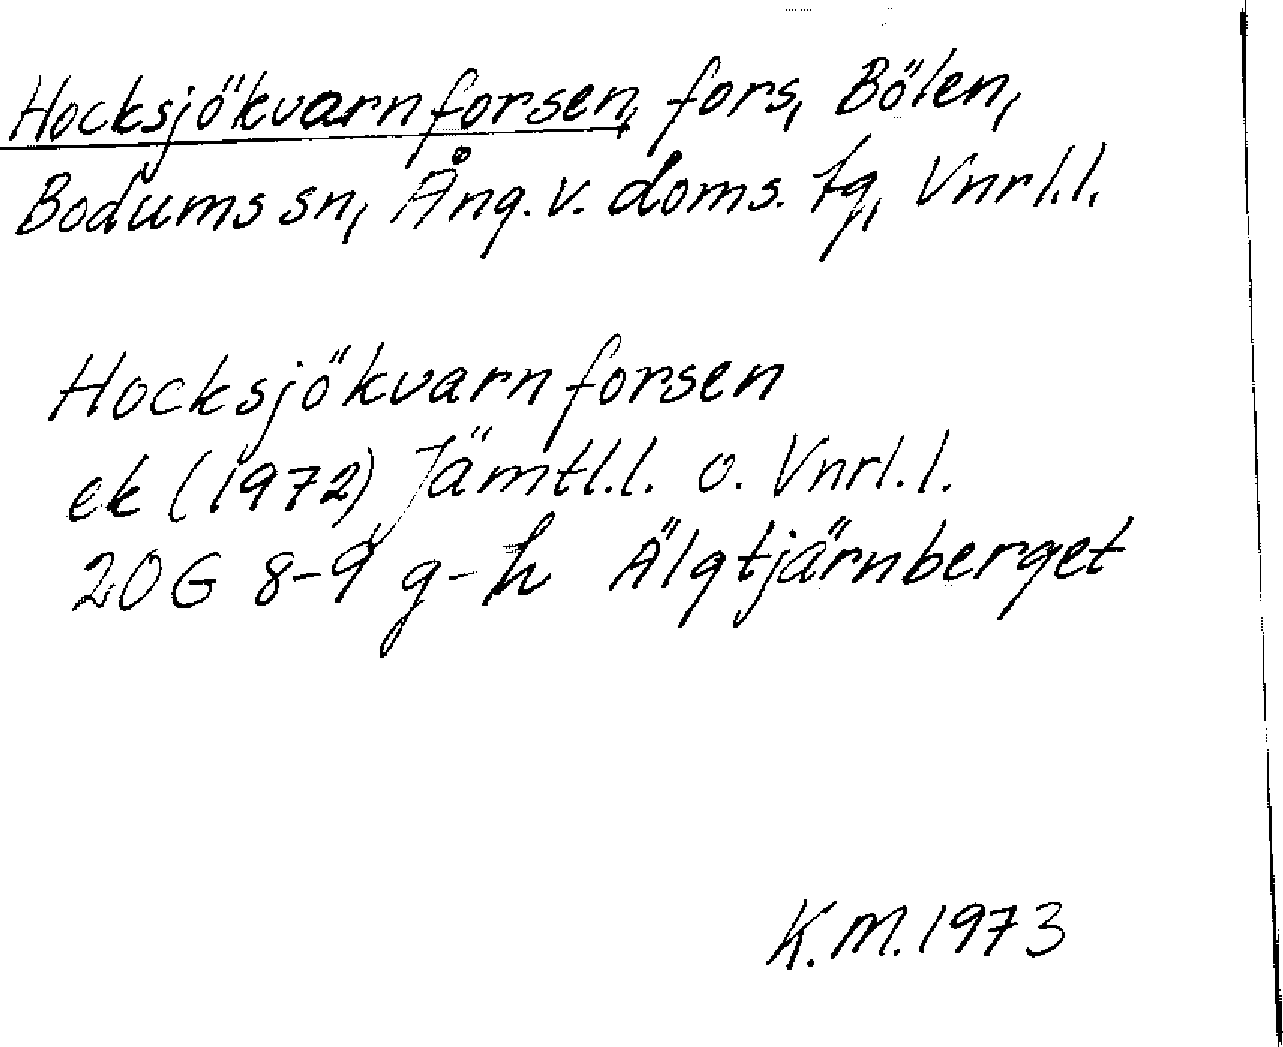 Hocksjökvarnforsen, fors, Bölen,
Bodums sn, Ång. v. doms. tg, Vnrl.l.
Hocksjökvarnforsen
ek (1972) Jämtl.l. o. Vnrl.l.
20G 8-9 g-h Älgtjärnberget
K.M. 1973